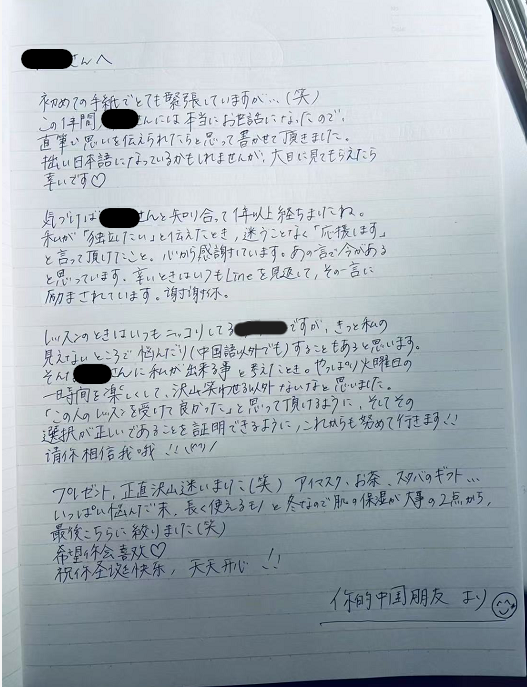 さんへ
初めての手紙でとても緊張していますが…(笑)
この1年間、さんには本当にお世話になったので、
直筆で思いを伝えられたらと思って書かせて頂きました。
拙い日本語になっているかもしれませんが、大目に見てもらえたら
幸いです♡
気づけばさんと知り合って1年以上経ちましたね。
私が「独立したい」と伝えたとき、迷うことなく「応援します」
と言って頂けたこと。心から感謝しています。あの言で今がある
と思っています。辛いときはいつもLineを見返して、その一言に
励まされています。谢谢你。
レッスンのときはいつもニッコリしてるですが、きっと私の
見えないところで悩んだり(中国語以外でも)することもあると思います。
そんなさんに私が出来る事と考えたとき。やっぱり火曜日の
一時間を楽しくして、沢山笑わせる以外ないなと思いました。
「この人のレッスンを受けて良かった」と思って頂けるように、そしてその
選択が正しいであることを証明できるように、これからも努めて行きます!!
请你相信我哦!!
プレゼント、正直沢山迷いました(笑) アイマスク、お茶、スタバのギフト…
いっぱい悩んだ末、長く使えるモノと冬なので肌の保湿が大事の2点から、
最後こちらに絞りました(笑)
希望你会喜欢♡
祝你圣诞快乐, 天天开心!!
你的中国朋友 より